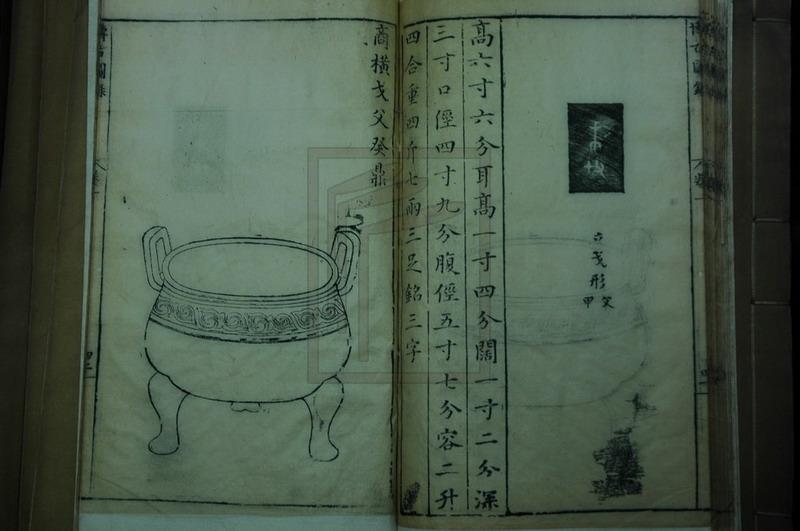 形
高六寸六分耳高一寸四分闊一寸二分深
三寸口徑四寸九分腹徑五寸七分容二升
四合重四斤七兩三足銘三字
商橫戈父癸鼎
博古圖錄